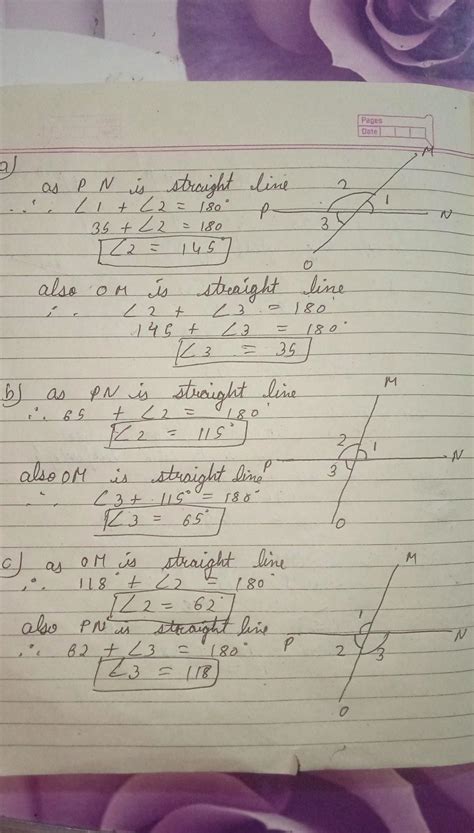 Pages
Date
a)
as P N is straight line
∴ ∠1 + ∠2 = 180°
35 + ∠2 = 180
∠2 = 145°
M
2
1
P
3
N
O
also OM is straight line
∴ ∠2 + ∠3 = 180°
145 + ∠3 = 180°
∠3 = 35
b) as PN is straight line
∴ 65 + ∠2 = 180°
∠2 = 115°
M
2
1
P
3
N
O
also OM is straight line
∴ ∠3 + 115° = 180°
∠3 = 65°
c) as OM is straight line
∴ 118° + ∠2 = 180°
∠2 = 62°
M
1
P
N
2
3
O
also PN is straight line
∴ 62 + ∠3 = 180°
∠3 = 118